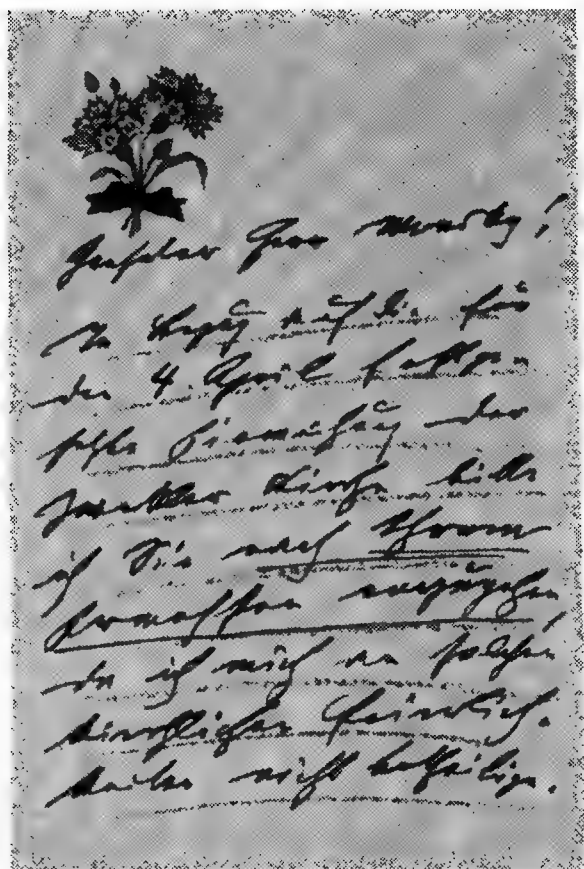 Geehrter Herr
In Bezug auf die für
den 4 April festge-
setzte Einweihung der
Kirche bitte
ich Sie nach Ihrem
Ermessen vorzugehen,
da ich mich an solchen
kirchlichen Feierlich-
keiten nicht betheilige.